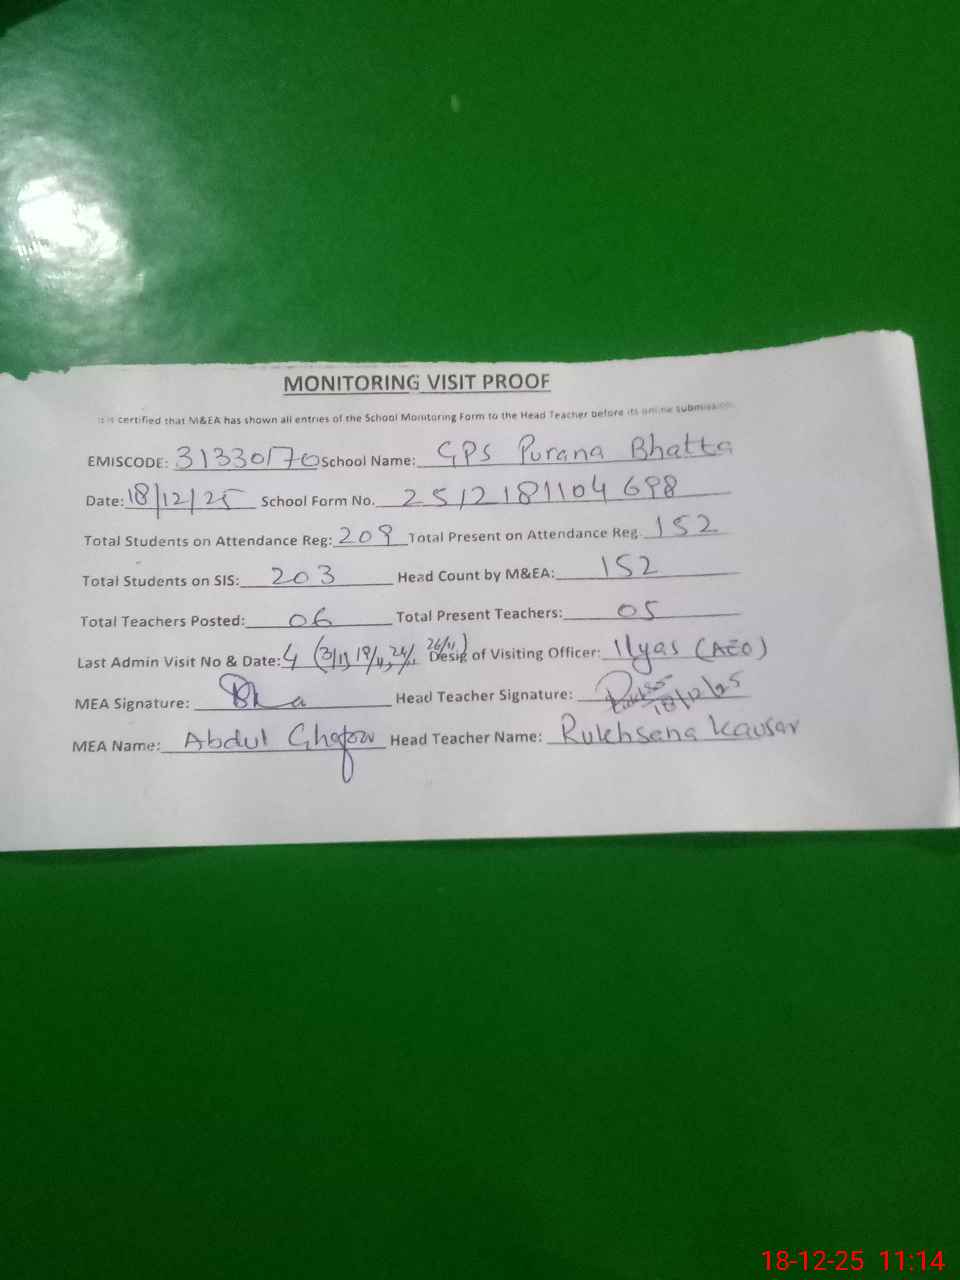 MONITORING VISIT PROOF
It is certified that M&EA has shown all entries of the School Monitoring Form to the Head Teacher before its online submission.
EMISCODE: 31330170 School Name: GPS Purana Bhatta
Date: 18/12/25 School Form No. 2512181104698
Total Students on Attendance Reg: 209 Total Present on Attendance Reg. 152
Total Students on SIS: 203 Head Count by M&EA: 152
Total Teachers Posted: 06 Total Present Teachers: 05
Last Admin Visit No & Date: 4 (3/11, 19/11, 24/11, 26/11) Desig of Visiting Officer: Ilyas (AEO)
MEA Signature: Head Teacher Signature: 18/12/25
MEA Name: Abdul Ghafoor Head Teacher Name: Rukhsana Kausar
18-12-25 11:14